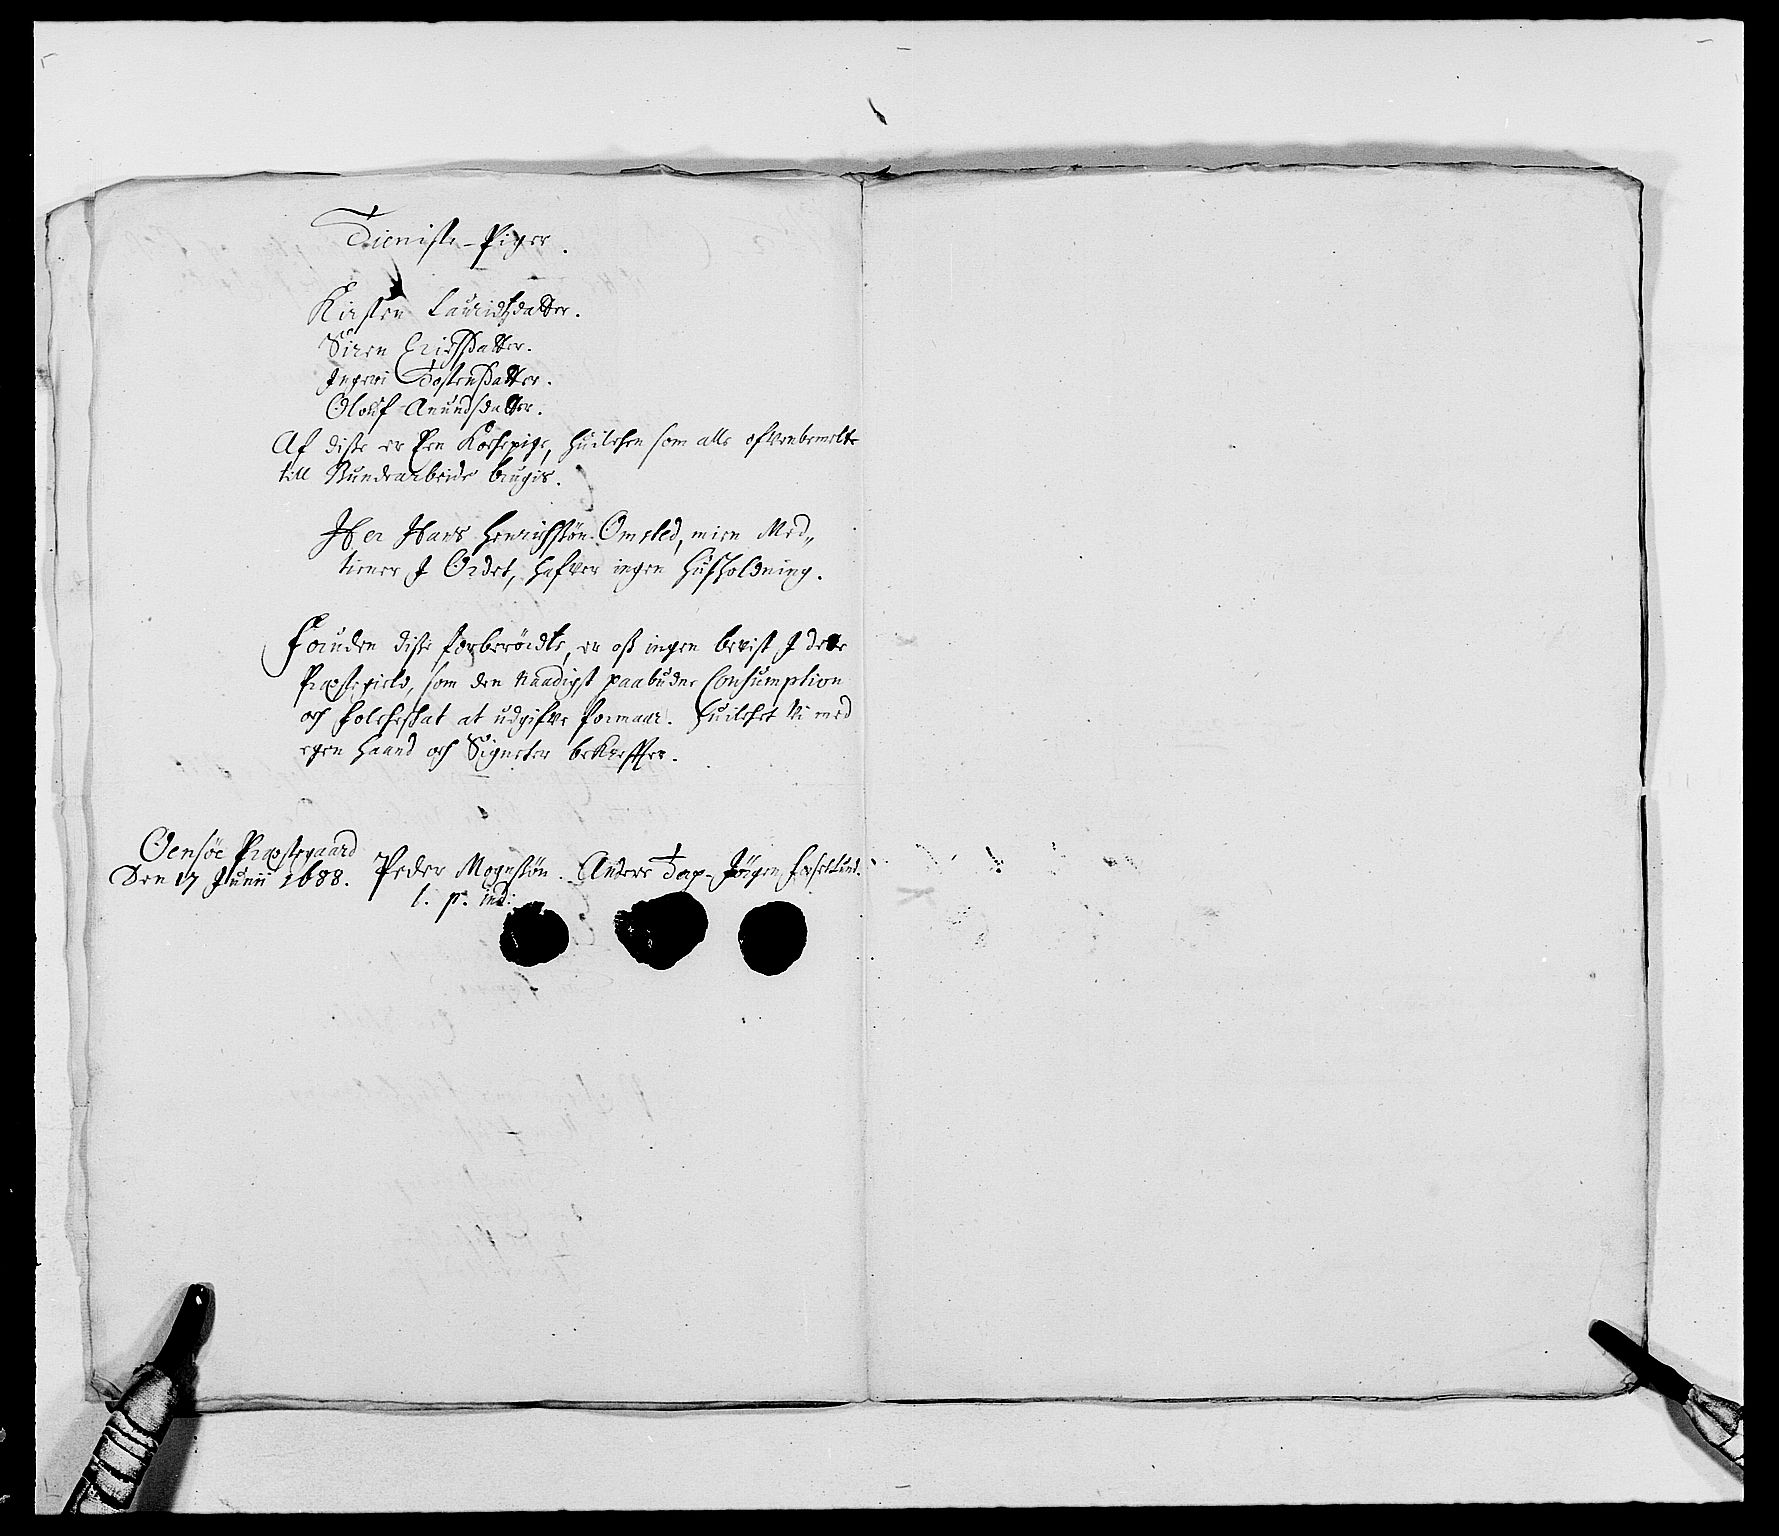 Tieniste-Piger.
Kirsten Lauridtzdatter.
Siren Erichsdatter.
Ingeri Tostensdatter.
Olouf Anundsdatter.
Af disse er Een Kochepige, huilchen som alle ofvenbemelte
till Bundearbeide brugis.
Her Hans Henrichssøn Omsted, mien Med-
tiener I Ordet, hafver ingen huusholdning.
Foruden disse forberørdte, er oss ingen bevist I dette
Præstegield, som den Naadigst paabudne Consumption
och folcheskat at udgifve formaar. Huilchet Vi med
egen Haand och Signeter bekræffter.
Oensøe Præstegaard
Den 17 Junii 1688. Peder Mognssøn. Anders Top. Jørgen
l. p. ind: